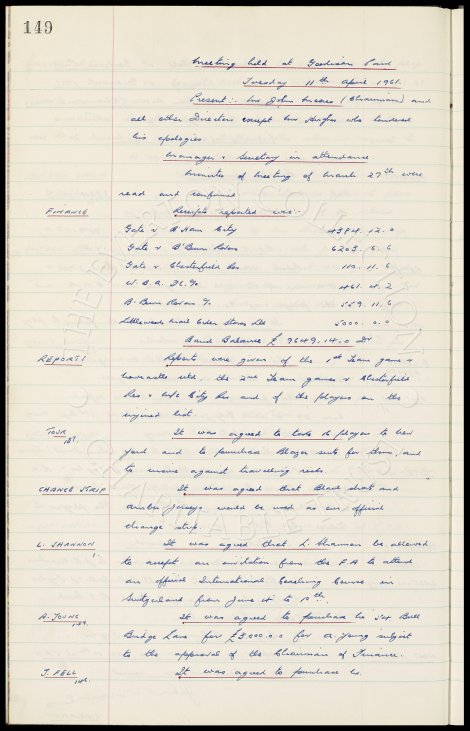 149
Meeting held at Goodison Park
Tuesday 11th April 1961.
Present:- Mr John Moores (Chairman) and
all other Directors except Mr Hughes who tendered
his apologies.
Manager & Secretary in attendance.
Minutes of Meeting of March 27th were
read and confirmed
FINANCE Receipts reported were:-
Gate v B'Ham City 4384. 12. 0
Gate v B'Burn Rovers 6203. 6. 6
Gate v Chesterfield Res 110. 11. 6
W. B. A. 461. 4. 2
B. Burn Rovers % 559. 11. 6
Littlewoods Mail Order Stores Ltd 5000. 0. 0
Bank Balance £ 9649. 14. 0 Dr
REPORTS Reports were given of the 1st Team game v
Newcastle Utd, the 2nd Team games v Chesterfield
Res & City Res and of the players on the
injured list.
TOUR It was agreed to take players to New
York and to purchase Blazer suits for them, and
to insure against travelling risks.
CHANGE STRIP It was agreed that Black shorts and
Amber Jerseys would be used as an official
change strip.
L. SHANNON It was agreed that L. Shannon be allowed
to accept an invitation from the F.A to attend
an official International Coaching Course in
Switzerland from June 4 to 10th.
A. YOUNG It was agreed to purchase Bull
Bridge Lane for £3,000.0.0 for A. Young subject
to the approval of the Chairman of Finance.
J. FELL It was agreed to purchase
THE EVERTON COLLECTION
CHARITABLE TRUST